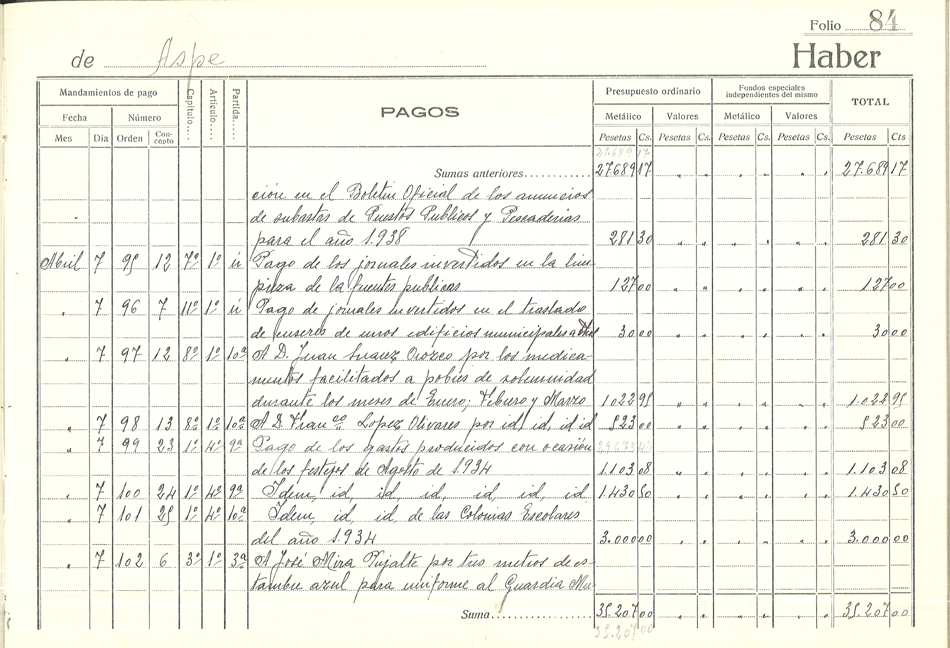 Folio 84
de Aspe Haber
Mandamientos de pago Capítulo Artículo Partida PAGOS Presupuesto ordinario Fondos especiales independientes del mismo TOTAL
Fecha Número Metálico Valores Metálico Valores
Mes Día Orden Concepto Pesetas Cs. Pesetas Cs. Pesetas Cs. Pesetas Cs. Pesetas Cts
27.689 17
Sumas anteriores 27.689 17 " " " " " " 27.689 17
ción en el Boletin Oficial de los anuncios
de subastas de Puestos Publicos y Pescaderias
para el año 1.938 281 30 " " " " " " 281 30
Abril 7 95 12 7º 1º Pago de los jornales invertidos en la lim-
pieza de la fuentes publicas 127 00 " " " " " " 127 00
" 7 96 7 11º 1º Pago de jornales invertidos en el traslado
de enseres de unos edificios municipales a otros 30 00 " " " " " " 30 00
" 7 97 12 8º 1º 10ª A D. Juan Suarez Orozco por los medica-
mentos facilitados a pobres de solemnidad
durante los meses de Enero; Febrero y Marzo 1.022 95 " " " " " " 1.022 95
" 7 98 13 8º 1º 10ª A D. Franco Lopez Olivares por id, id, id id 523 00 " " " " " " 523 00
" 7 99 23 1º 4º 9ª Pago de los gastos producidos con ocasión
de los festejos de Agosto de 1.934 1.103 08 " " " " " " 1.103 08
" 7 100 24 1º 4º 9ª Idem, id, id, id, id, id, id 1.430 50 " " " " " " 1.430 50
" 7 101 25 1º 4º 10ª Idem, id, id, de las Colonias Escolares
del año 1.934 3.000 00 " " " " " " 3.000 00
" 7 102 6 3º 1º 3ª A José Mira Pujalte por tres metros de es-
tambre azul para uniforme al Guardia Mu-
Suma 35.207 00 " " " " " " 35.207 00
35.207 00